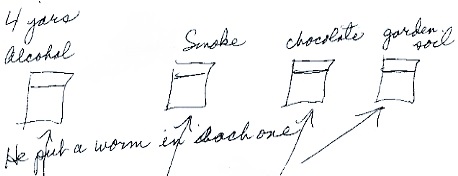 4 jars
Alcohol Smoke chocolate garden soil
He put a worm in each one